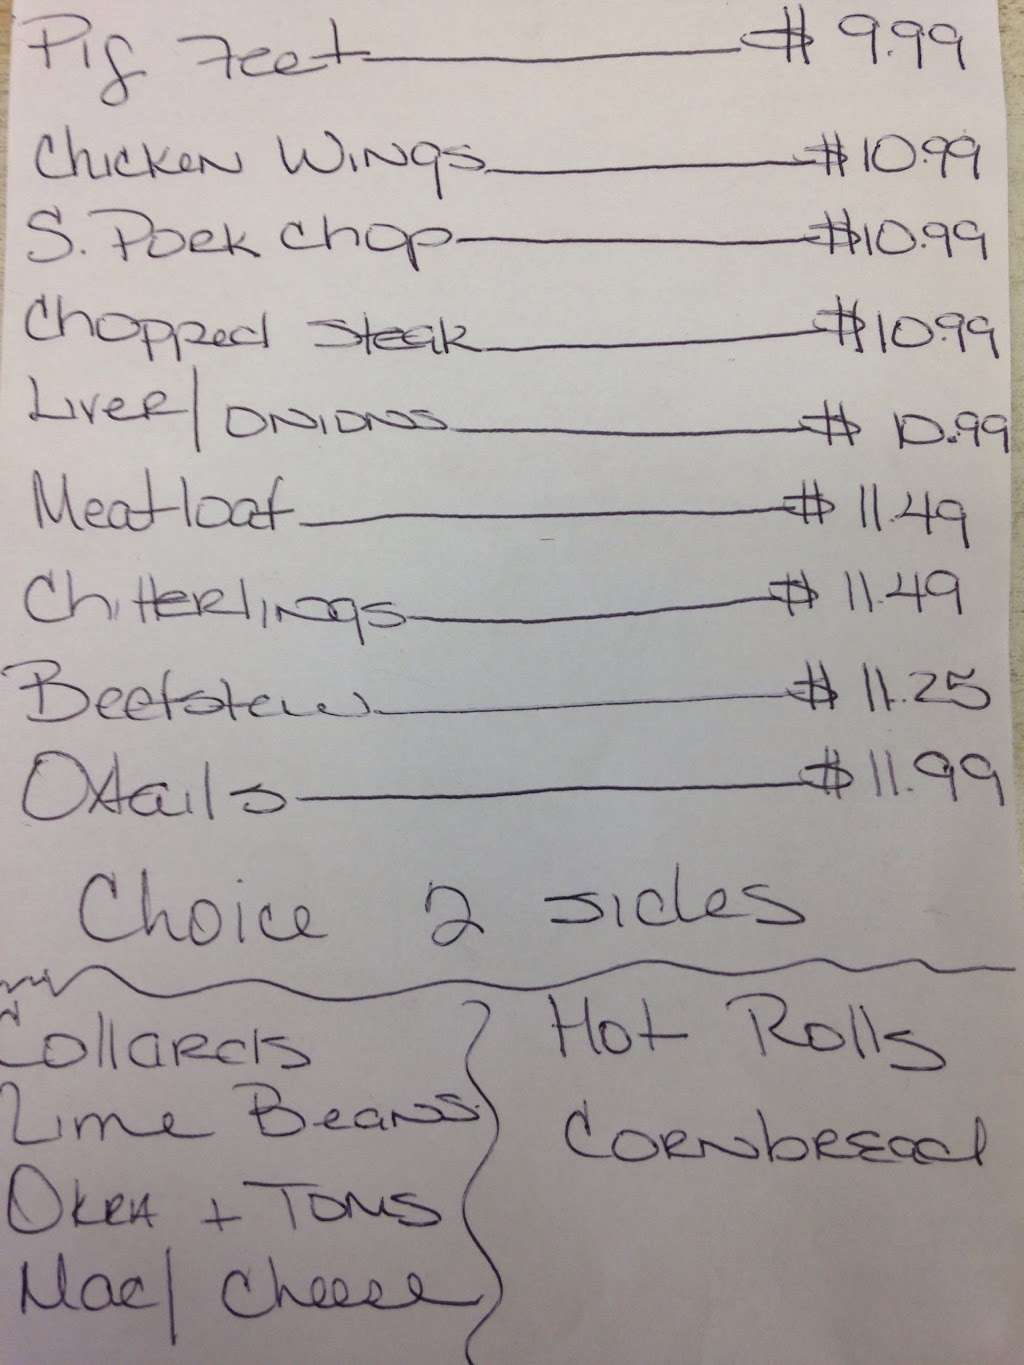 Pig Feet $ 9.99
Chicken Wings $10.99
S. Pork Chop $10.99
Chopped Steak $10.99
Liver/Onions $ 10.99
Meatloaf $ 11.49
Chitterlings $ 11.49
Beefstew $ 11.25
Oxtails $ 11.99
Choice 2 sides
Collards
Lime Beans
Okra + Toms
Mac/ Cheese
Hot Rolls
Cornbread